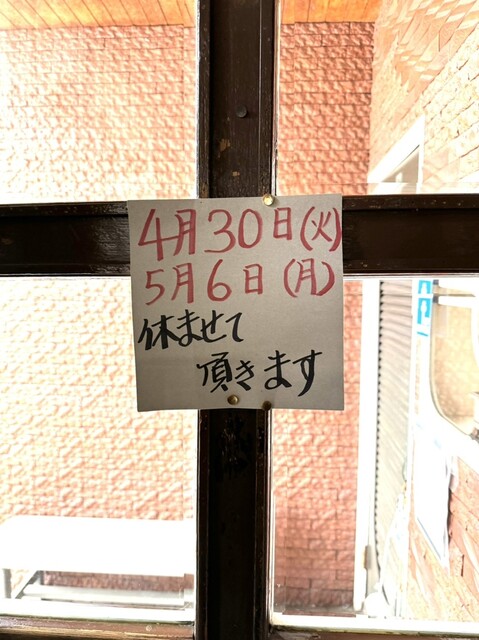 4月30日(火)
5月6日(月)
休ませて
頂きます